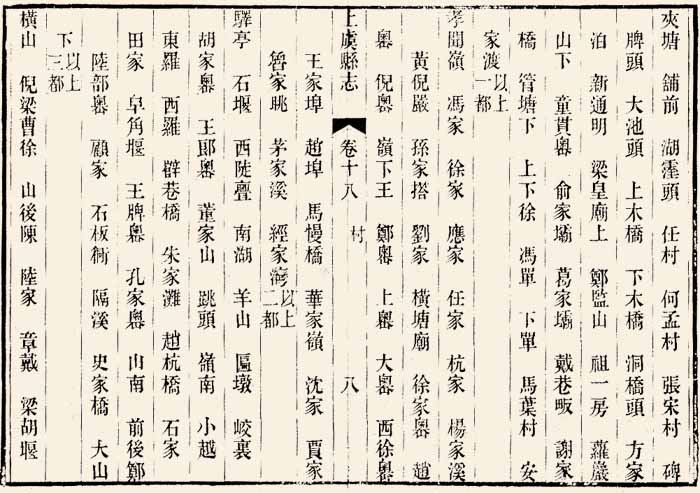 夾塘 舖前 湖𩃬頭 任村 何孟村 張宋村 碑
牌頭 大池頭 上木橋 下木橋 洞橋頭 方家
泊 新通明 梁皇廟上 鄭監山 祖一房 蘿巖
山下 童貫嶴 俞家壩 葛家壩 戴巷畈 謝家
橋 管塘下 上下徐 馮單 下單 馬葉村 安
家渡 以上一都
孝聞嶺 馮家 徐家 應家 任家 杭家 楊家溪
黃倪嚴 孫家搭 劉家 橫塘廟 徐家嶴 趙
嶴 倪嶴 嶺下王 鄭嶴 上嶴 大嶴 西徐嶴
上虞縣志 卷十八 村 八
王家埠 趙埠 馬慢橋 華家嶺 沈家 賈家
魯家眺 茅家溪 經家 以上二都
驛亭 石堰 西陡亹 南湖 羊山 匾墩 峧裏
胡家嶴 王郎嶴 董家山 跳頭 嶺南 小越
東羅 西羅 辟巷橋 朱家灘 趙杭橋 石家
田家 皁角堰 王牌嶴 孔家嶴 山南 前後鄭
陸部嶴 顧家 石板衖 隔溪 史家橋 大山
下 以上三都
橫山 倪梁曹徐 山後陳 陸家 章戴 梁胡堰